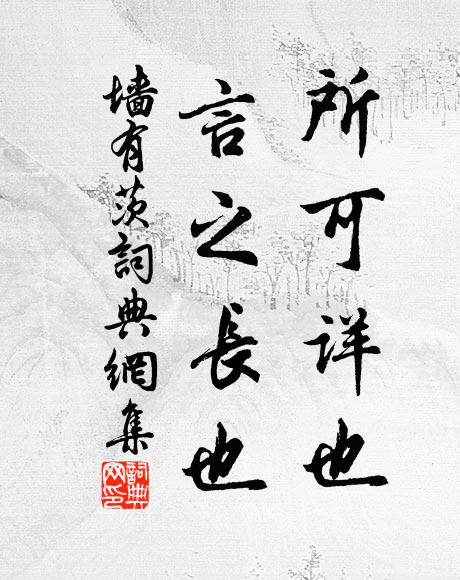 所可详也
言之長也
墙有茨詞典網集
詞典網印